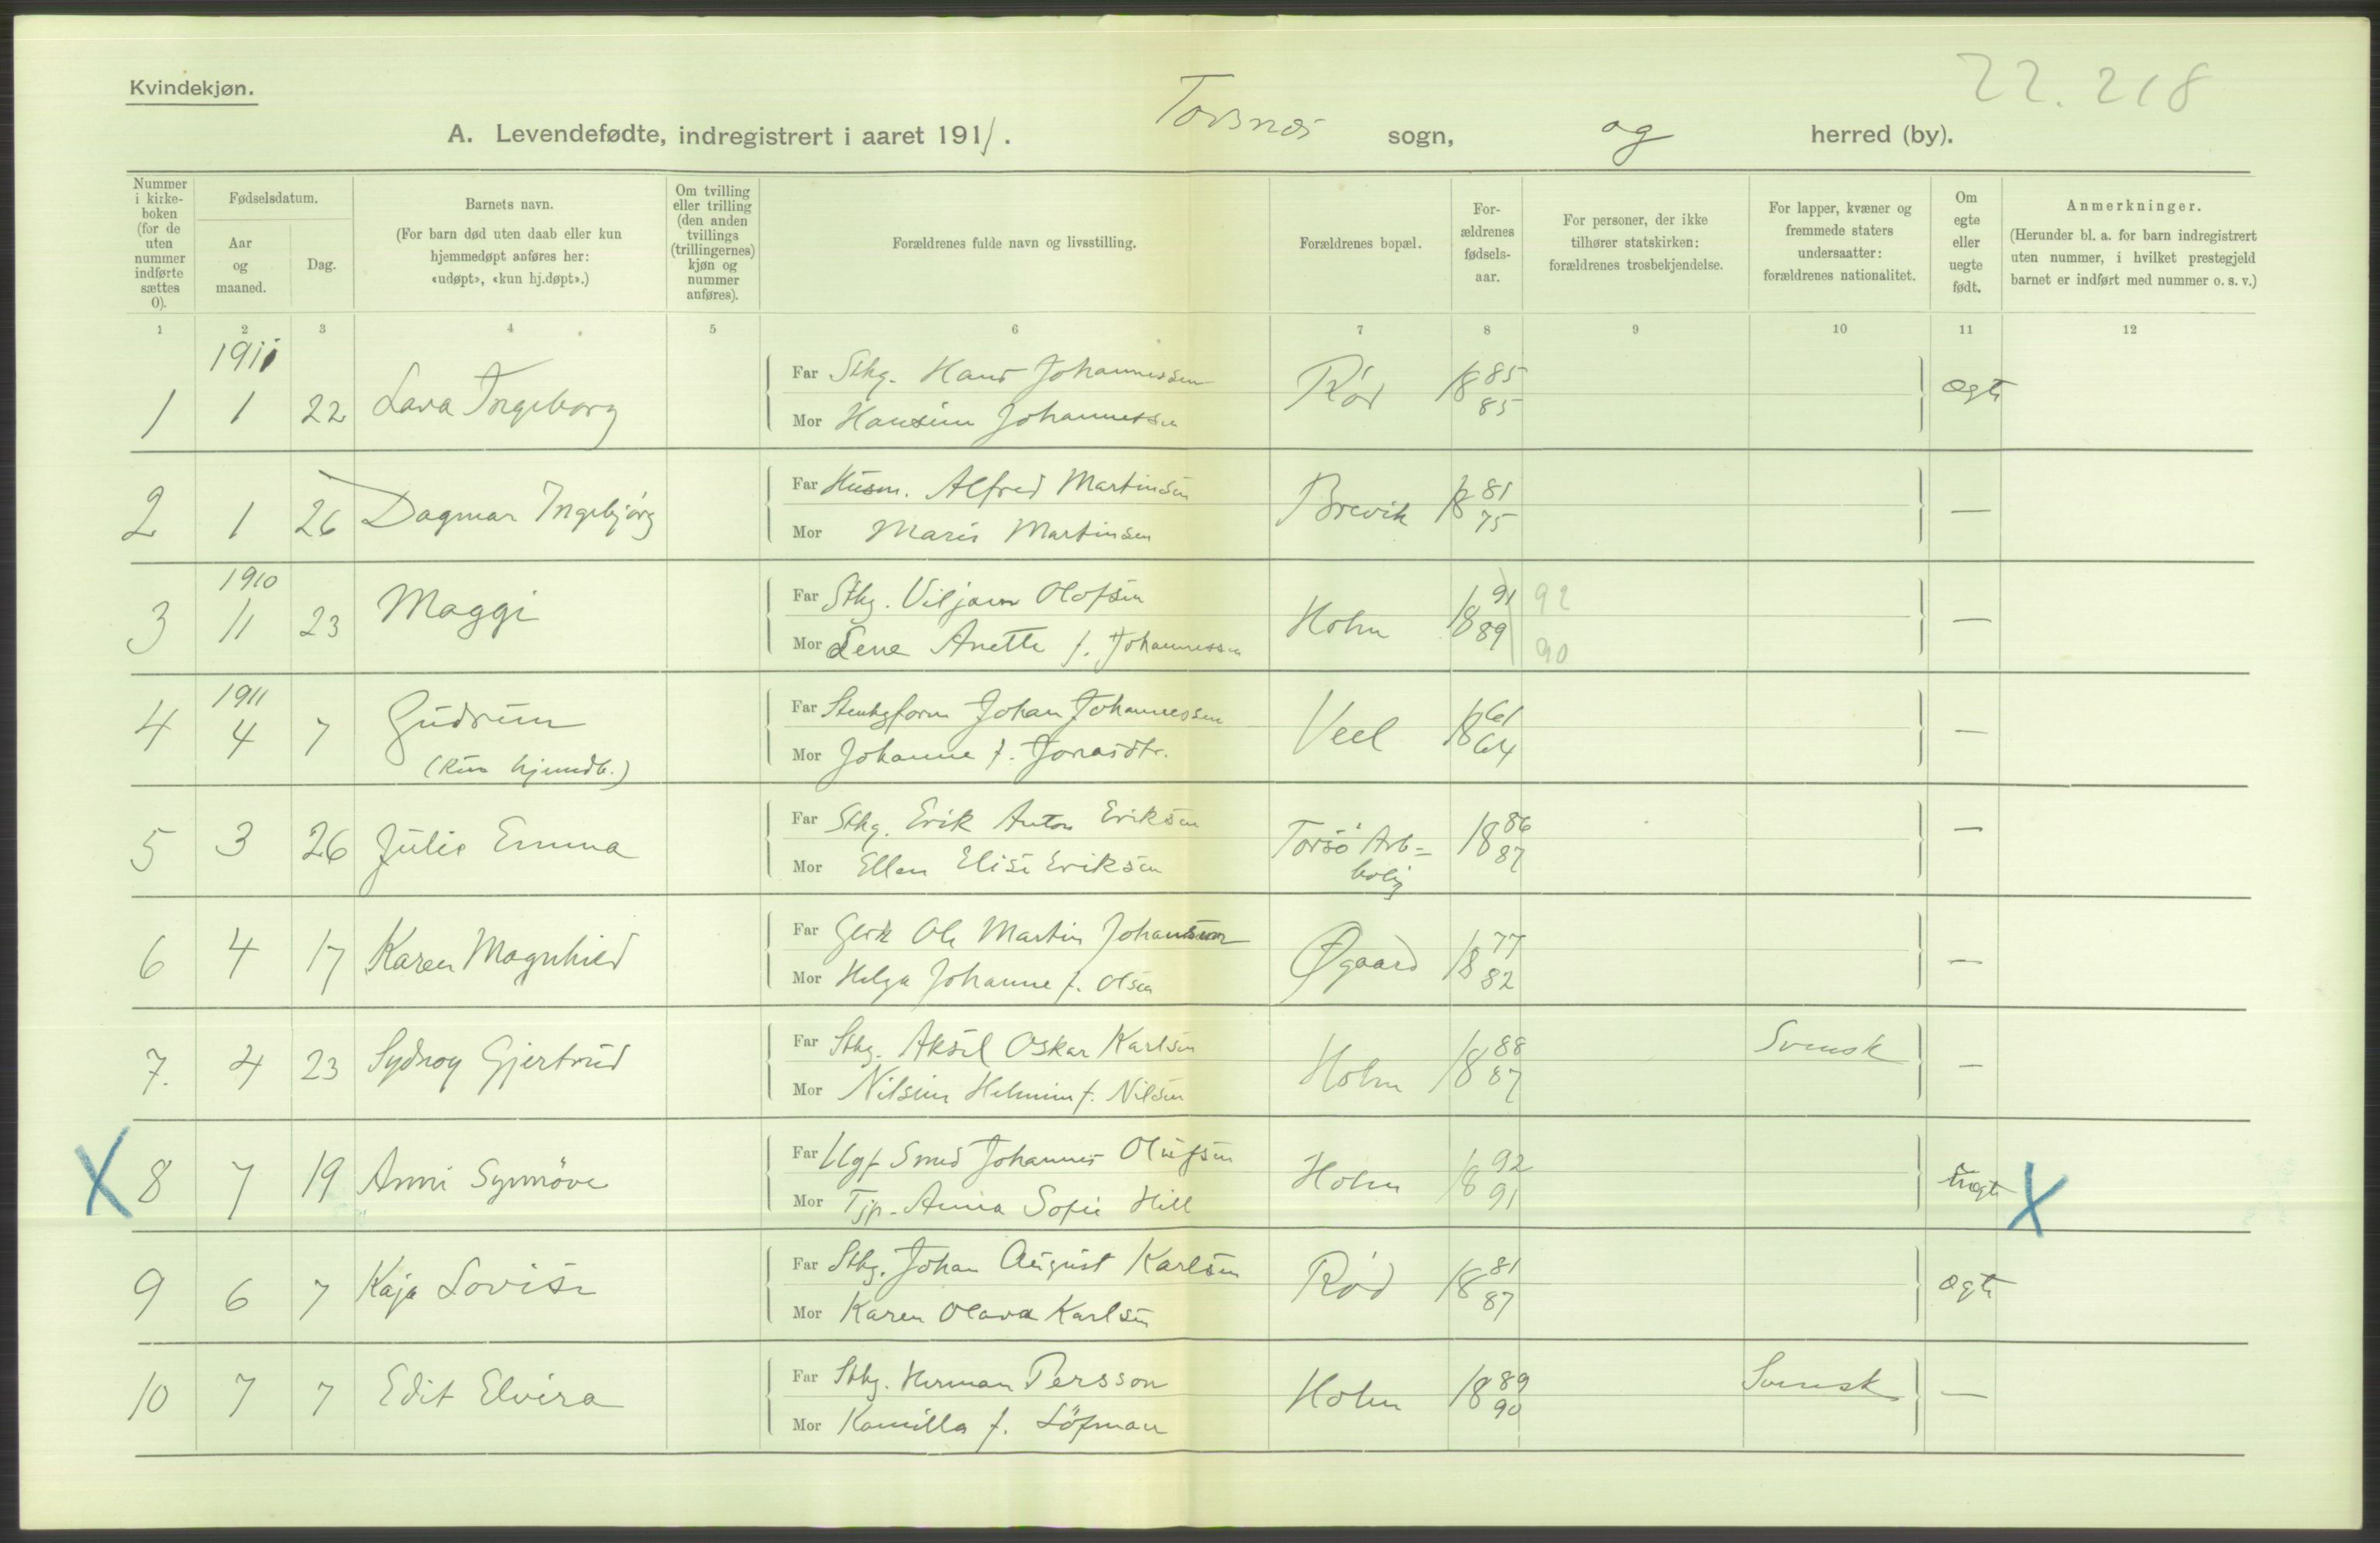 Kvindekjøn.
22. 218
A. Levendefødte, indregistrert i aaret 1911. Torsnes sogn, og herred (by).
Nummer i kirke-boken (for de uten nummer indførte sættes 0).
Fødselsdatum.
Aar og maaned.
Dag.
Barnets navn.
(For barn død uten daab eller kun hjemmedøpt anføres her: «udøpt», «kun hj.døpt».)
Om tvilling eller trilling (den anden tvillings (trillingernes) kjøn og nummer anføres).
Forældrenes fulde navn og livsstilling.
Forældrenes bopæl.
For-ældrenes fødsels-aar.
For personer, der ikke tilhører statskirken: forældrenes trosbekjendelse.
For lapper, kvæner og fremmede staters undersaatter: forældrenes nationalitet.
Om egte eller uegte født.
Anmerkninger.
(Herunder bl. a. for barn indregistrert uten nummer, i hvilket prestegjeld barnet er indført med nummer o. s. v.)
1 2 3 4 5 6 7 8 9 10 11 12
1911
1 1 22 Lava Ingeborg Far Sthg. Hans Johannessen Rød 1885 ægte
Mor Hansine Johannessen 85
2 1 26 Dagmar Ingebjørg Far Husm. Alfred Martinsen Brevik 1881 —
Mor Marie Martinsen 75
1910
3 11 23 Maggi Far Sthg. Viljam Olofsen Holm 1891 92 —
Mor Lene Anette f. Johannessen 89 90
1911
4 4 7 Gudrun Far Stenhgform Johan Johannessen Veel 1861 —
(kun hjemdb.) Mor Johanne f. Jonasdtr. 64
5 3 26 Julie Emma Far Sthg. Erik Anton Eriksen Torsö Arb= 1886 —
Mor Ellen Elise Eriksen bolig 87
6 4 17 Karen Magnhild Far Ole Martin Johansen Øgaard 1877 —
Mor Helga Johanne f. Olsen 82
7. 4 23 Sydnoy Gjertrud Far Sthg. Aksel Oskar Karlsen Holm 1888 Svensk —
Mor Nilsine Helmine f. Nilsen 87
X 8 7 19 Anni Synnöve Far Ugf Smed Johannes Olufsen Holm 1892 uægte X
Mor Tjp. Anna Sofie Hill 91
9 6 7 Kaja Lovise Far Sthg. Johan August Karlsen Rød 1881 ægte
Mor Karen Olava Karlsen 87
10 7 7 Edit Elvira Far Sthg. Herman Persson Holm 1889 Svensk —
Mor Kamilla f. Löfman 90